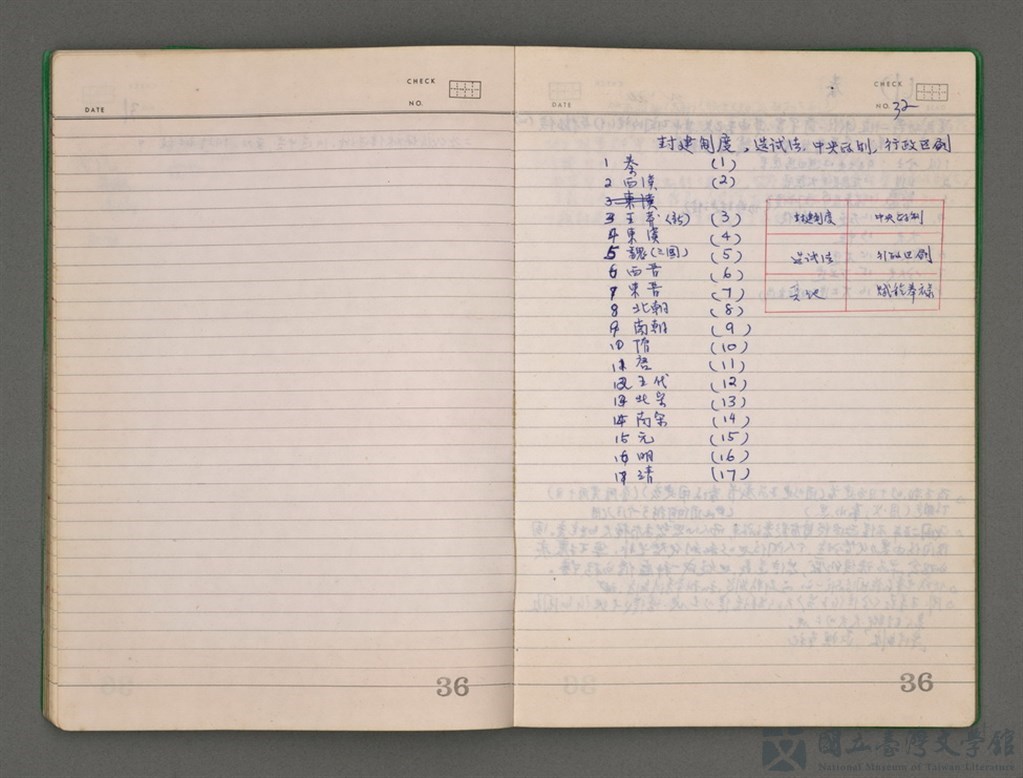 CHECK
DATE
NO.
36
CHECK
DATE
NO. 32
封建制度, 选試法, 中央政制, 行政区劃
1 秦 (1)
2 西漢 (2)
3 東漢
3 王莽(新) (3)
4 東漢 (4)
5 魏(三國) (5)
6 西晋 (6)
7 東晋 (7)
8 北朝 (8)
9 南朝 (9)
10 隋 (10)
11 唐 (11)
12 五代 (12)
13 北宋 (13)
14 南宋 (14)
15 元 (15)
16 明 (16)
17 清 (17)
封建制度 中央政制
选試法 行政区劃
其他
36
國立臺灣文學館
National Museum of Taiwan Literature